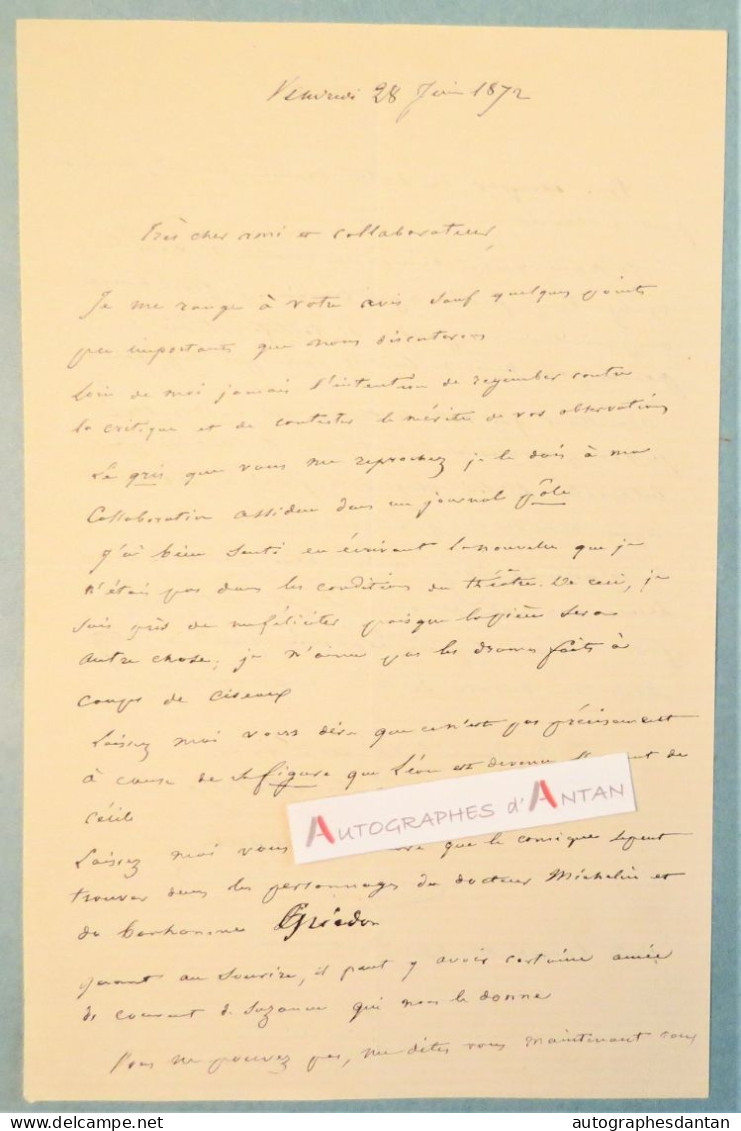 Vendredi 28 Juin 1872
Très cher ami et collaborateur,
Je me range à votre avis sauf quelques points
peu importants que nous discuterons
Loin de moi jamais l'intention de regimber contre
la critique et de contester le mérite de vos observations
Le gris que vous me reprochez je le dois à ma
Collaboration assidue dans un journal pâle
J'ai bien senti en écrivant la nouvelle que je
n'étais pas dans les conditions du théâtre. De ceci, je
suis près de me féliciter puisque la pièce sera
autre chose; je n'aime pas les drames faits à
coups de ciseaux
Laissez moi vous dire que ce n'est pas précisément
à cause de sa figure que Léon est devenu l'amant de
Cécile
Laissez moi vous que le comique se peut
trouver dans les personnages du docteur Michelin et
du bonhomme Griédon
quant au sourire, il peut y avoir certaine amie
de couvent de Suzanne qui nous le donne
Vous ne pouvez pas, me dites vous maintenant vous
AUTOGRAPHES d'ANTAN
www.delcampe.net
autographesdantan